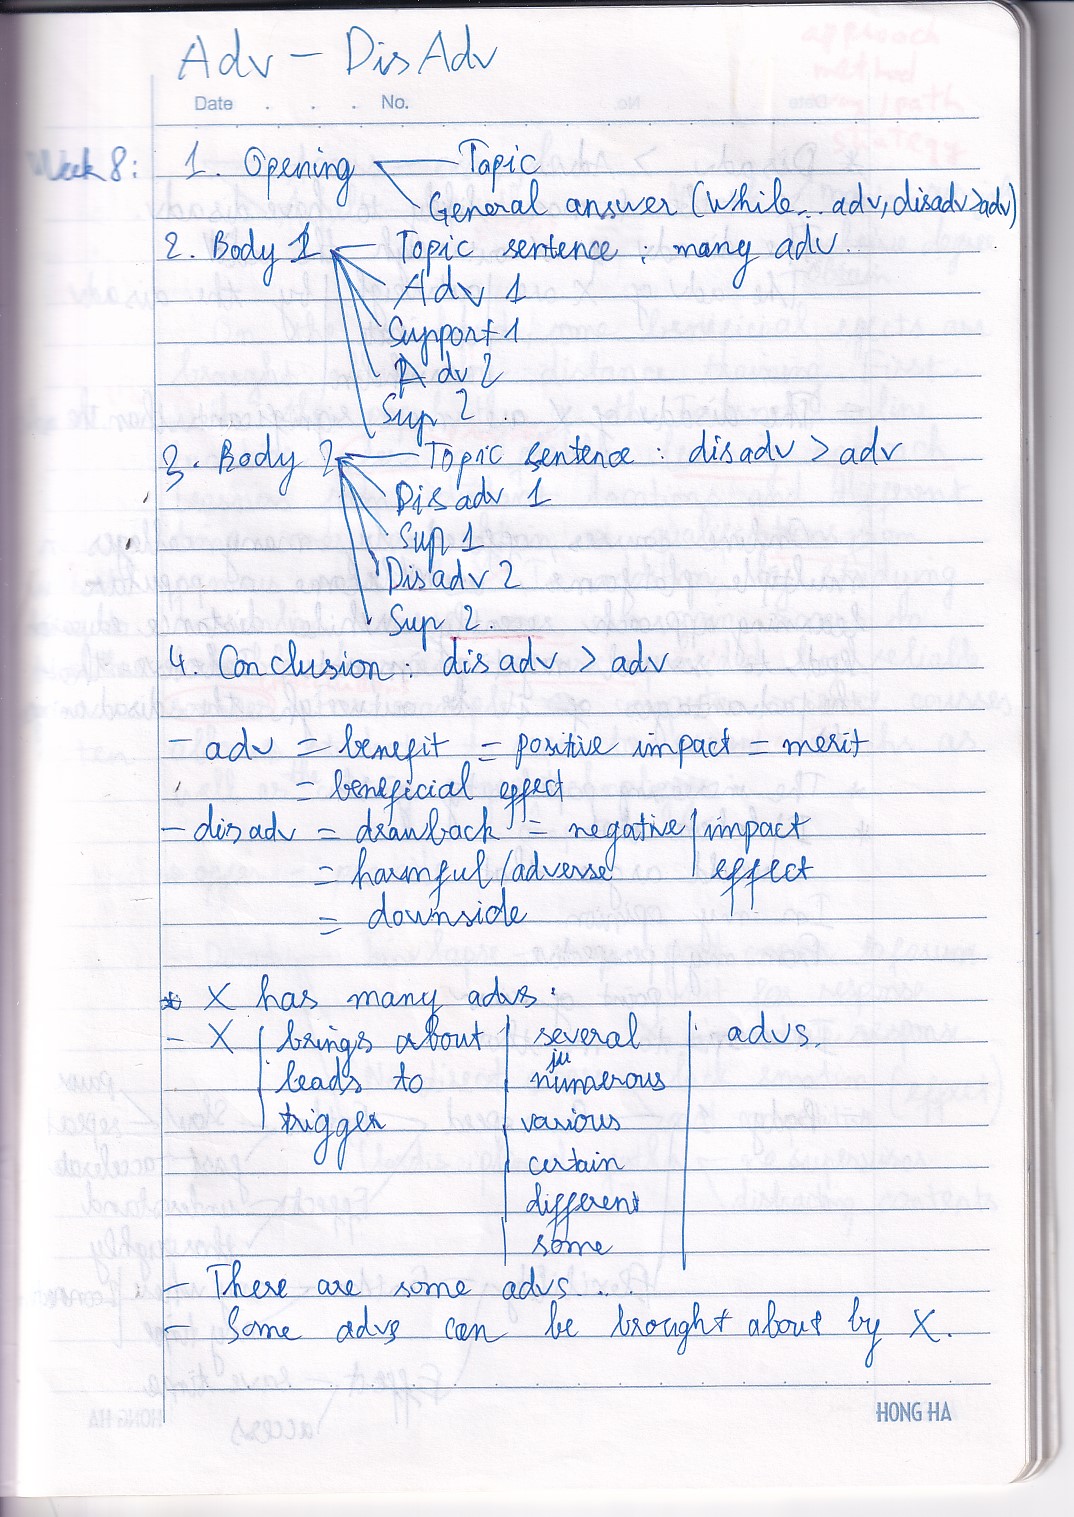 Adv – DisAdv
Date . . . No.
Week 8:
1. Opening — Topic
General answer (While... adv, disadv > adv)
2. Body 1 — Topic sentence : many adv.
Adv 1
Support 1
Adv 2
Sup 2
3. Body 2 — Topic sentence : disadv > adv
Disadv 1
Sup 1
Disadv 2
Sup 2.
4. Conclusion: disadv > adv
– adv = benefit = positive impact = merit
= beneficial effect
– disadv = drawback = negative | impact
= harmful / adverse | effect
= downside
* X has many advs.
– X | brings about | several | advs.
leads to | numerous
trigger | various
certain
different
some
– There are some advs....
– Some advs can be brought about by X.
HONG HA